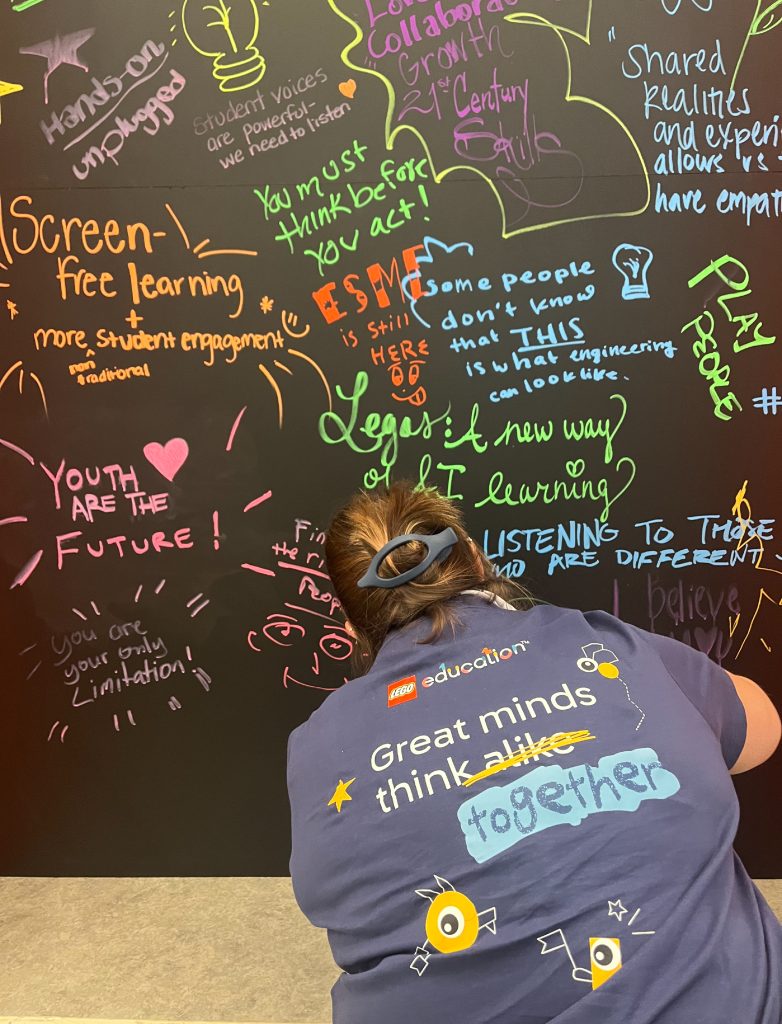 Hands-on
unplugged
Student voices
are powerful-
we need to listen
Love
Collaborat
Growth
21st Century
Skills
"Shared
Realities
and experi
allows us
have empat
You must
think before
you act!
Screen-
free learning
+
more student engagement
non
traditional
ESME
is still
HERE
some people
don't know
that THIS
is what engineering
can look like.
PLAY
PEOPLE
#
Legos: A new way
of learning
YOUTH
ARE THE
FUTURE!
LISTENING TO THOSE
WHO ARE DIFFERENT
I believe
you are
your only
Limitation!
LEGO education™
Great minds
think alike
together